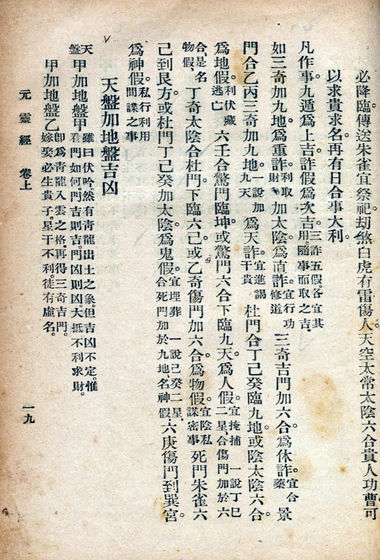 必降臨傳送宜祭祀劫煞白虎有雷傷人天空太常太陰六合貴人功曹可
以求貴求名再有日合事大利
凡作事九遁爲上吉詐假爲次吉三詐五假各宜其用隨事而取之吉
如三奇加九地爲重詐利取財加太陰爲眞詐宜行功修道三奇吉門加六合爲休詐宜合藥景
門合乙丙三奇加九地一說加九天爲天詐宜進謁干貴杜門合丁己癸臨九地或陰太陰六合
爲地假利伏藏逃亡六壬合驚門臨坤或驚門六合下臨九天爲人假宜掩捕一說丁巳二星合傷門加於六
合是名物假丁奇太陰合杜門下臨六己或乙奇傷門加六合爲物假宜陰私謀密事死門朱雀六
己到艮方或杜門丁己癸加太陰爲鬼假宜埋葬一說己癸二星合死門加於九地名神假六庚傷門到巽宮
爲神假私行利用間諜之事
天盤加地盤吉凶
天盤甲加地盤甲雖曰伏吟然有青龍出土之象但吉凶不定惟看門如何門吉則吉門凶則凶大抵不利求財
甲加地盤乙即爲青龍入雲之格再得三奇吉門嫁娶必生貴子星干不利徒有虛名
元靈經 卷上
一九